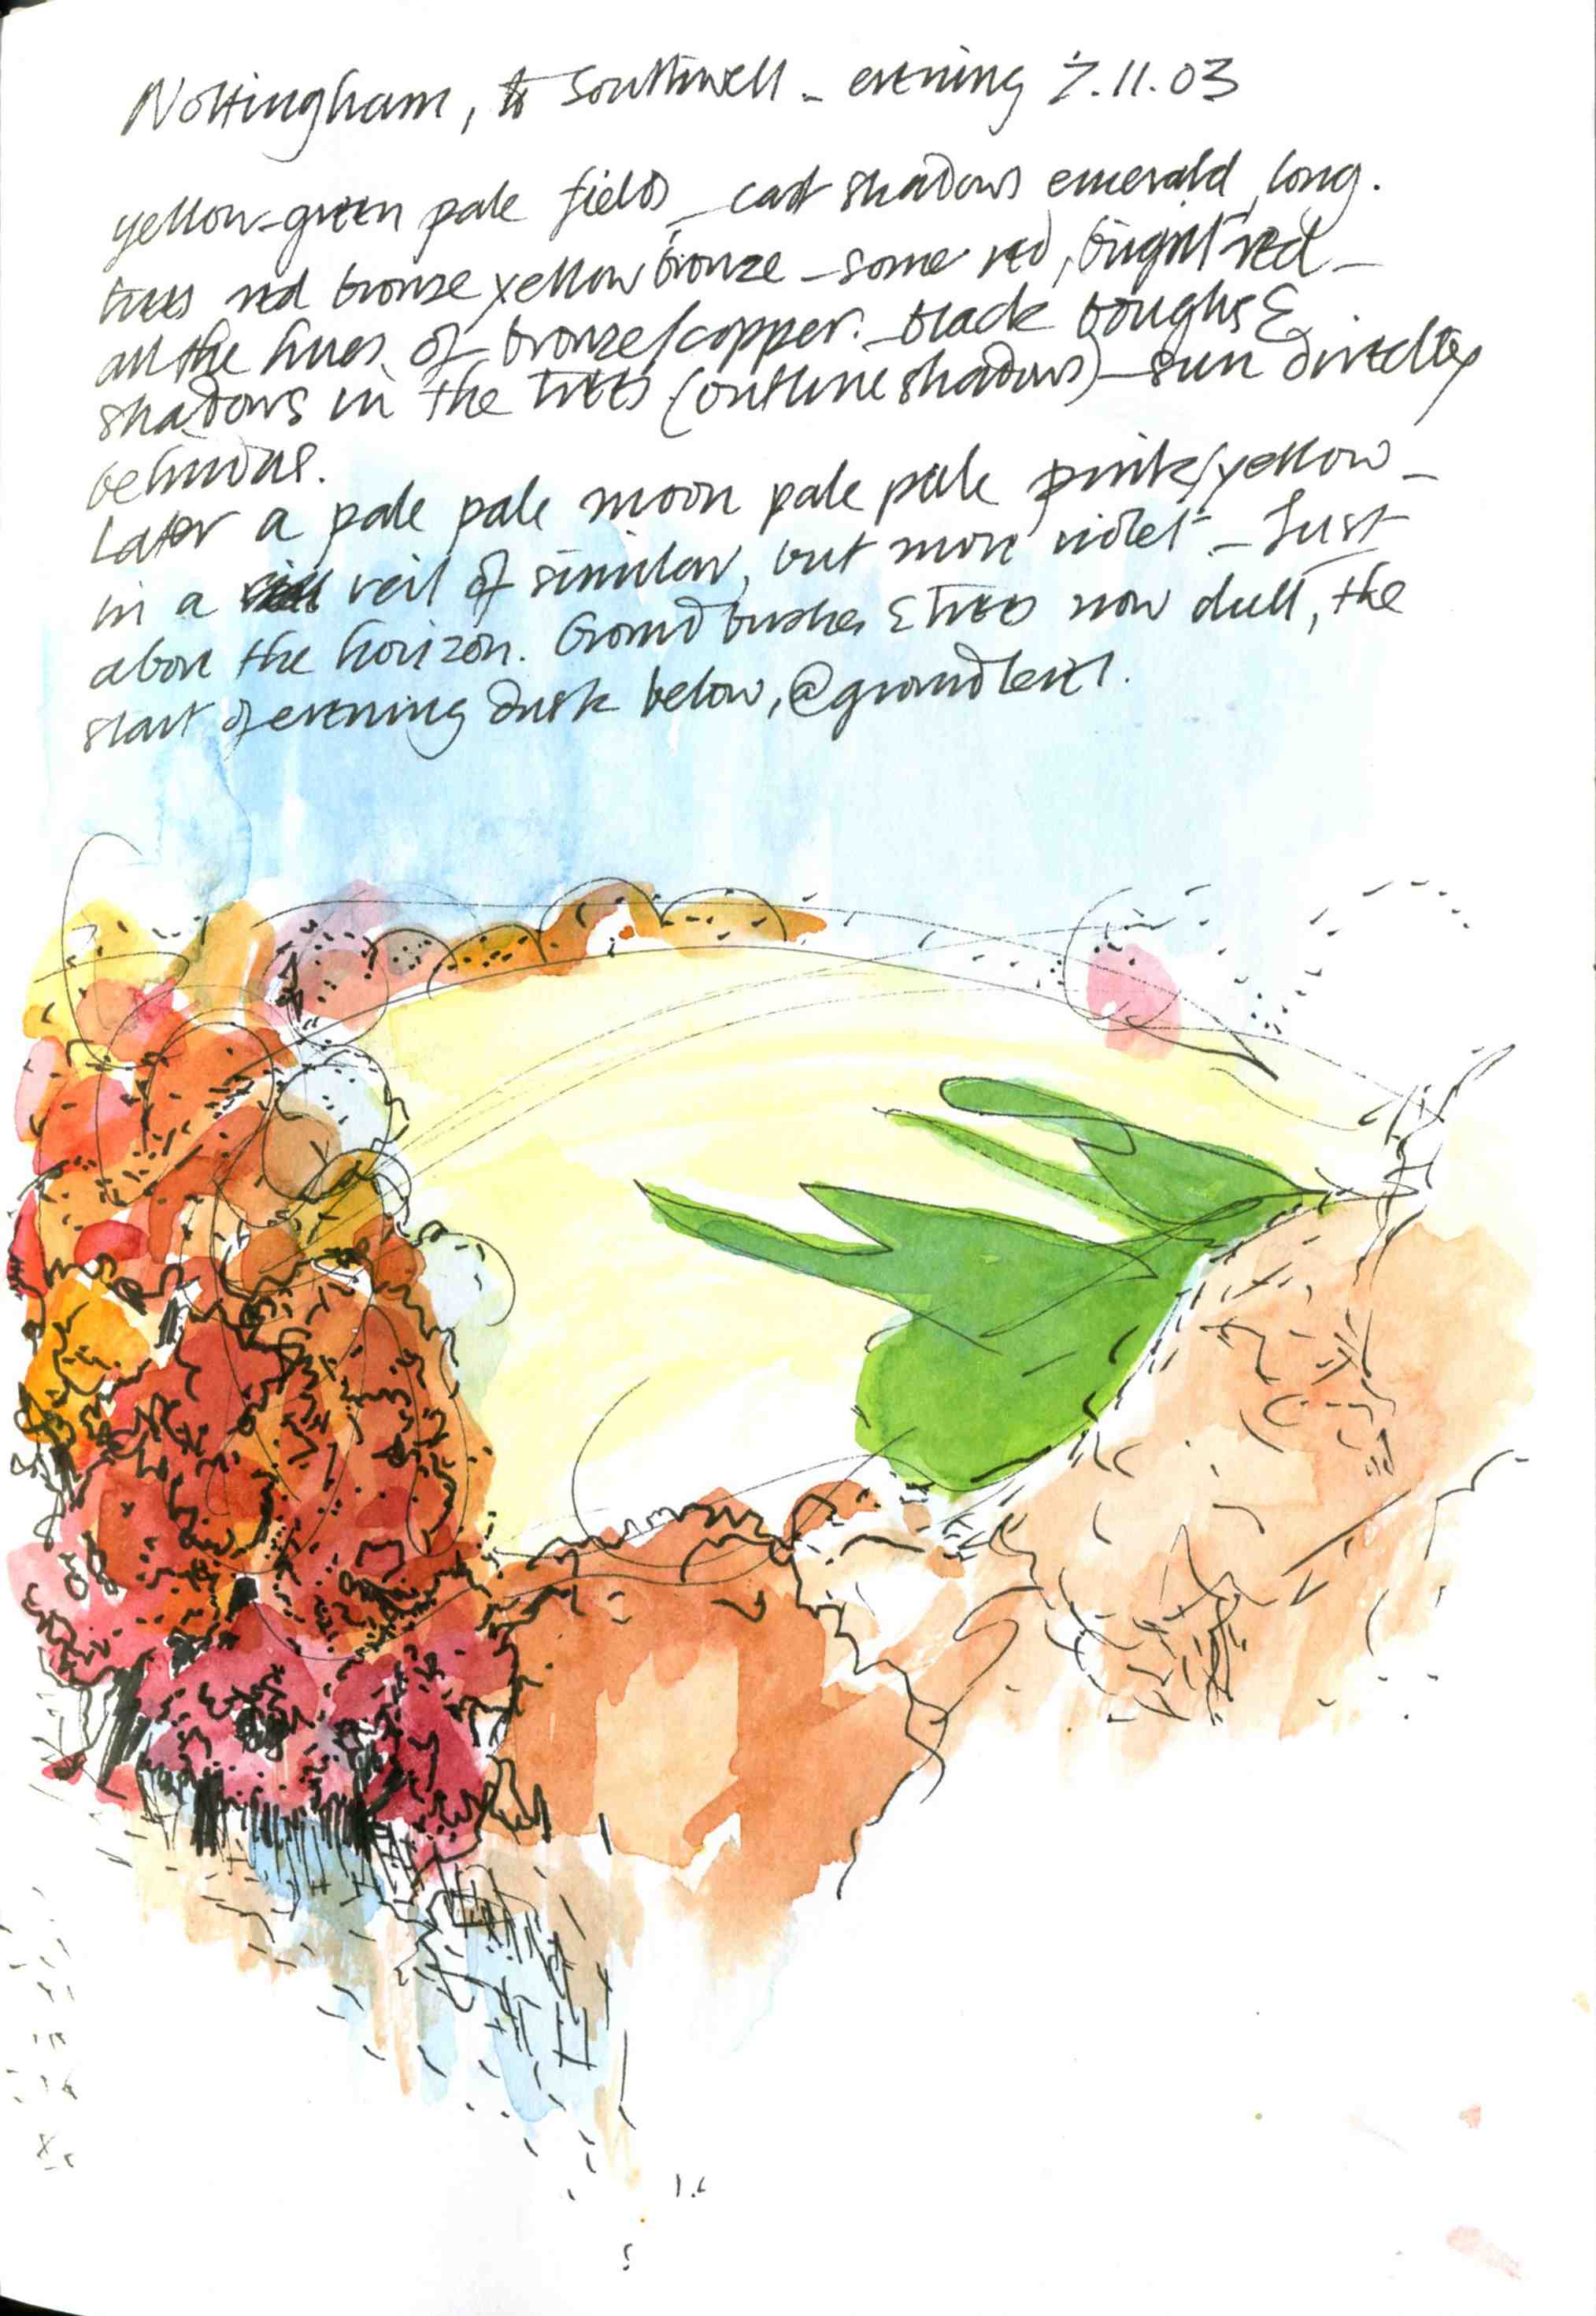 Nottingham, to Southwell - evening 7.11.03
yellow-green pale fields - cast shadows emerald, long.
trees red bronze yellow bronze - some red, bright red -
all the hues of bronze/copper. - black boughs &
shadows in the trees (outline shadows) - sun directly
behind us.
Later a pale pale moon pale pale pink/yellow -
in a veil of similar, but more violet - Just
above the horizon. Ground bushes & trees now dull, the
start of evening dusk below, @ground level.